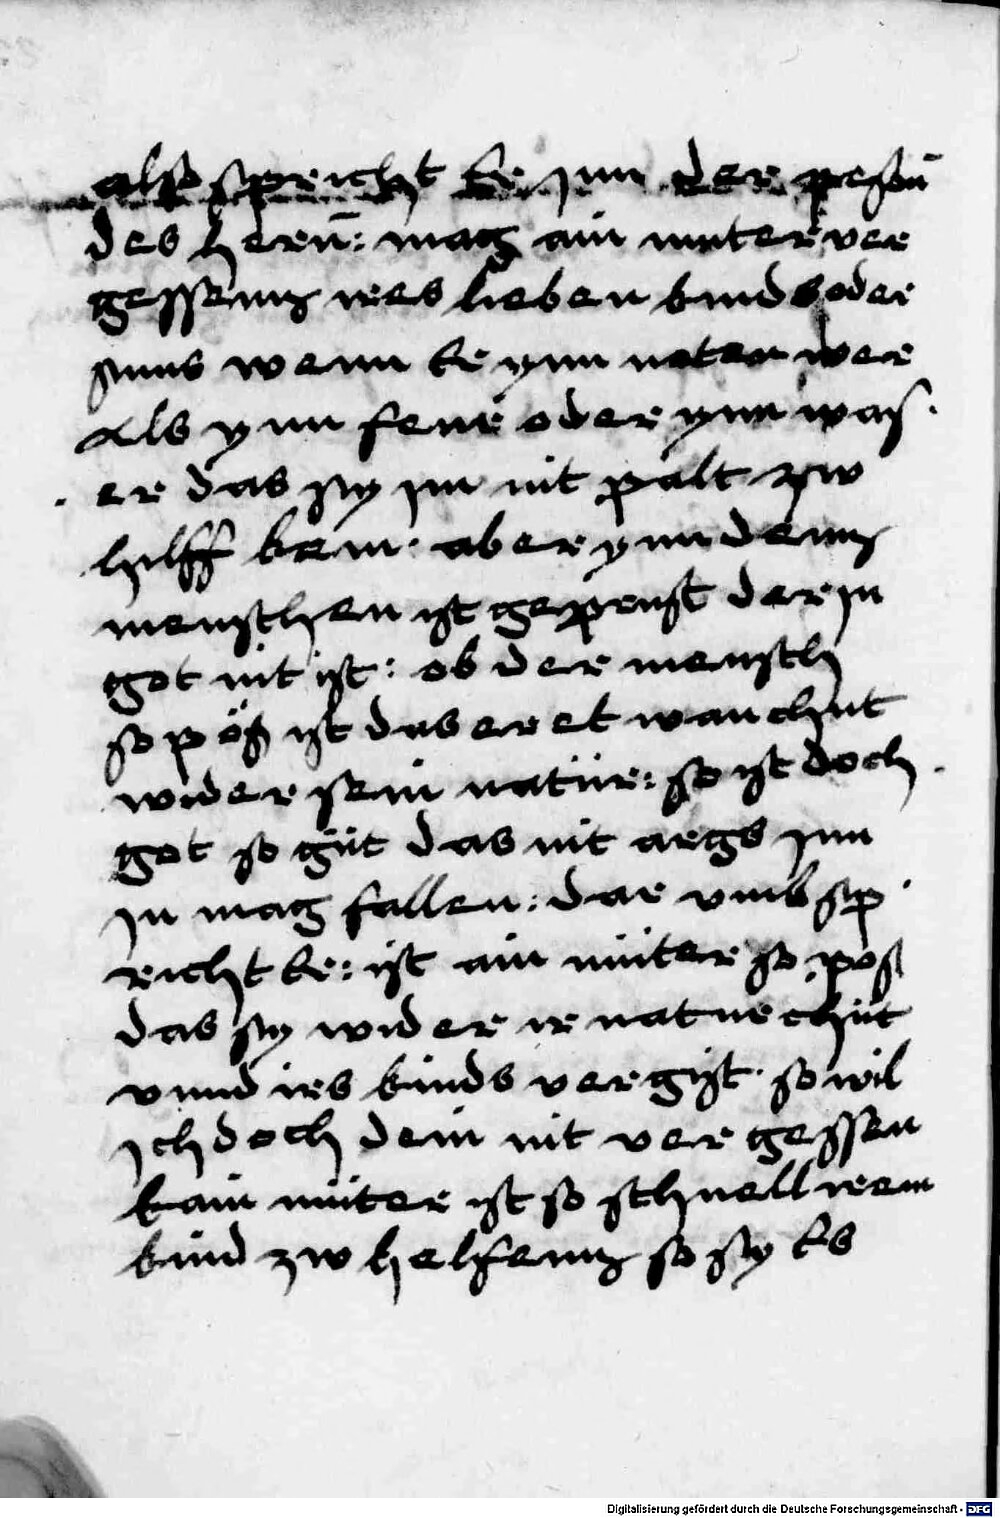 also spricht Er Jnn der peson̄
des hern̄: mag ain mueter ver
gessenn ires lieben kinds oder
suns wenn Er ynn noten wer
Als ynn feuer oder ynn wass
er das sy im nit palt zw
hilff kem· aber ynn denn
menschen ist geprenst der in
got nit ist: ob der mensch
so pöß ist das er et wan thut
wider sein natür: so ist doch
got so güt das nit args Jnn
Jn mag fallen: dar vmb sp
richt Er: ist ain müter so poß
das sy wider ir natur thüt
vnnd irs kinds vergist· so wil
Jch doch dein nit vergessen
kain müter ist so schnell irem
kind zw helfenn so sy Es
Digitalisierung gefördert durch die Deutsche Forschungsgemeinschaft - DFG